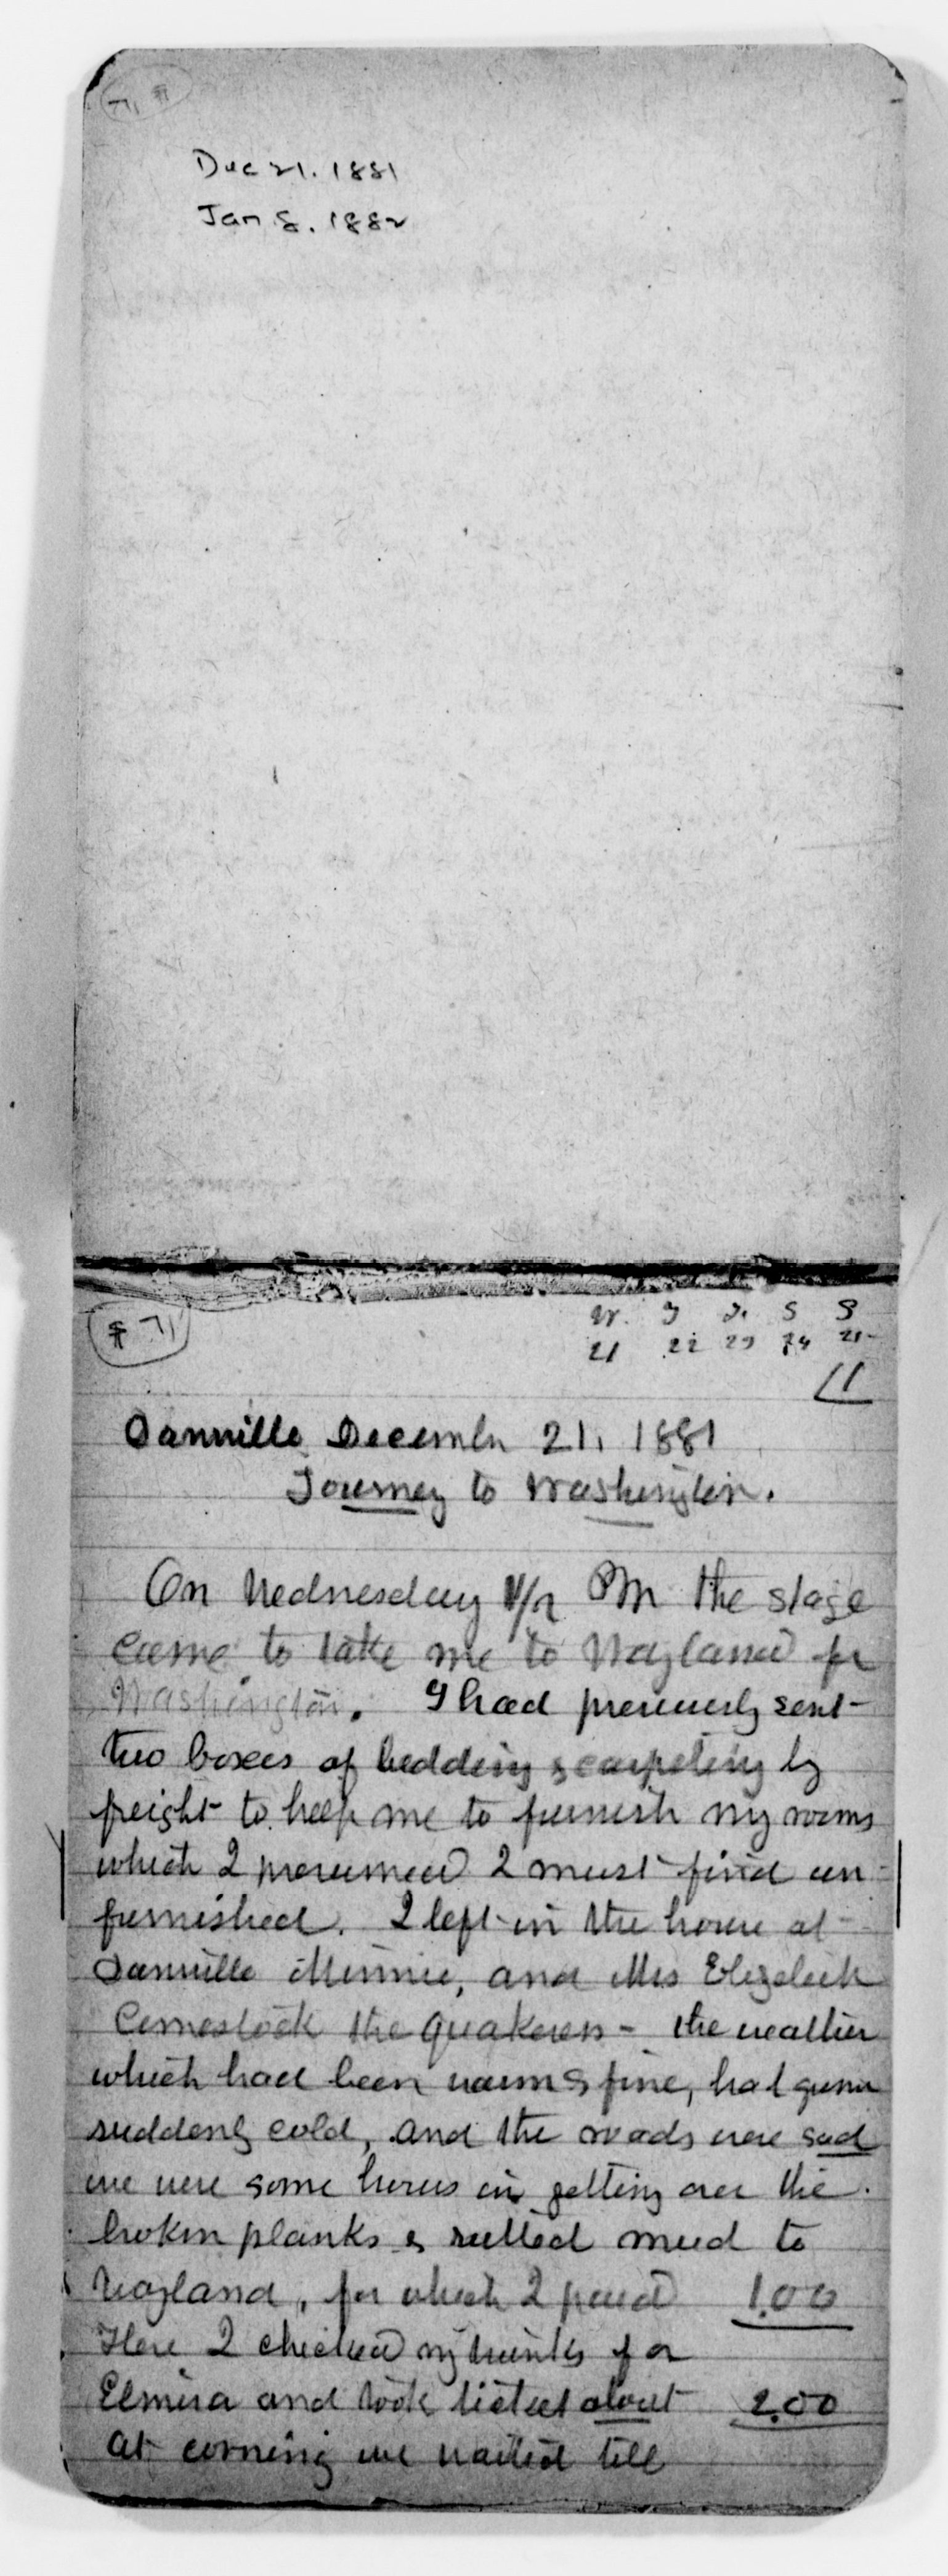 # 71
Dec 21. 1881
Jan 8. 1882
# 71
W. T F. S S
21 22 23 24 25
11
Dansville December 21, 1881
Journey to Washington.
On Wednesday PM the stage
came to take me to Wayland for
Washington. I had previously sent
two boxes of bedding & carpeting by
freight to help me to furnish my rooms
which I presumed I must find un-
furnished. I left in the house at
Dansville Minnie, and Mrs Elizabeth
Comestock the quakeress - the weather
which had been warm & fine, had grown
suddenly cold, and the roads were sad
we were some hours in getting over the
broken planks & rutted mud to
Wayland, for which I paid 1.00
Here I checked my trunks for
Elmira and took ticket about 2.00
At corning we waited till